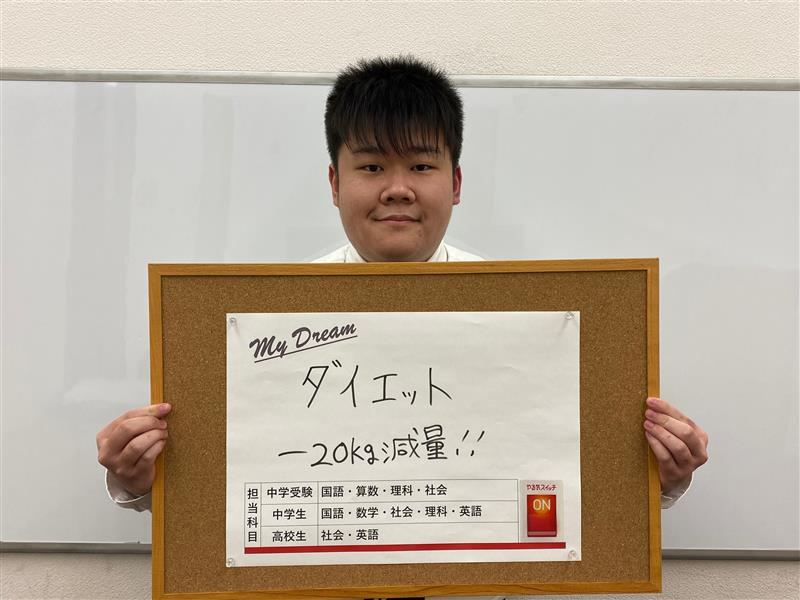 My Dream
ダイエット
−20kg減量!!
担当科目
中学受験 国語・算数・理科・社会
中学生 国語・数学・社会・理科・英語
高校生 社会・英語
やる気スイッチ
ON